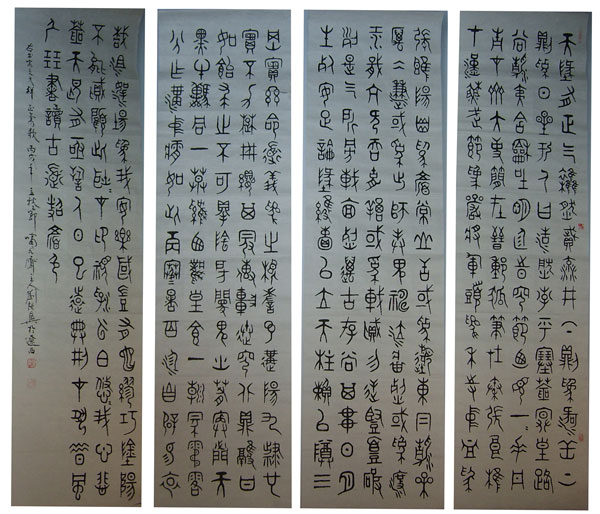 天地有正气雜然賦流形下則為河嶽上
則為日星於人曰浩然沛乎塞蒼冥皇路
當清夷含和吐明庭時窮節乃見一一垂丹
青在齊太史簡在晉董狐筆在秦張良椎
在漢蘇武節為嚴將軍頭為嵇侍中血為
張睢陽齒為顏常山舌或為遼東帽清操
厲冰雪或為出師表鬼神泣壯烈或為渡
江楫慷慨吞胡羯或為擊賊笏逆豎頭破
裂是氣所磅礴凜烈萬古存當其貫日月
生死安足論地維賴以立天柱賴以尊三
綱實繫命道義為之根嗟予遘陽九隸也
實不力楚囚纓其冠傳車送窮北鼎鑊甘
如飴求之不可得陰房闐鬼火春院閟天
黑牛驥同一皂雞棲鳳凰食一朝蒙霧露
分作溝中瘠如此再寒暑百沴自辟易哀
哉沮洳場為我安樂國豈有他繆巧陰陽
不能賊顧此耿耿在仰視浮雲白悠悠我心悲
蒼天曷有極哲人日已遠典刑在夙昔風
簷展書讀古道照顏色
右宋文天祥正氣歌 齋主人劉 於遼西